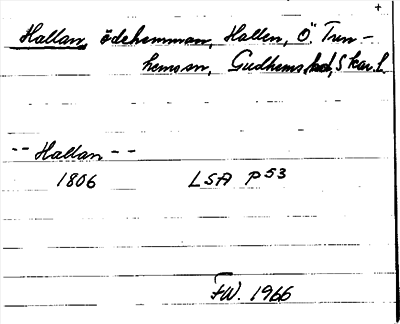 +
Hallan, ödehemman, Hallen, Ö. Tun-
hemssn, Gudhems hd, Skar. L.
-- Hallan --
1806 LSA P53
FW. 1966